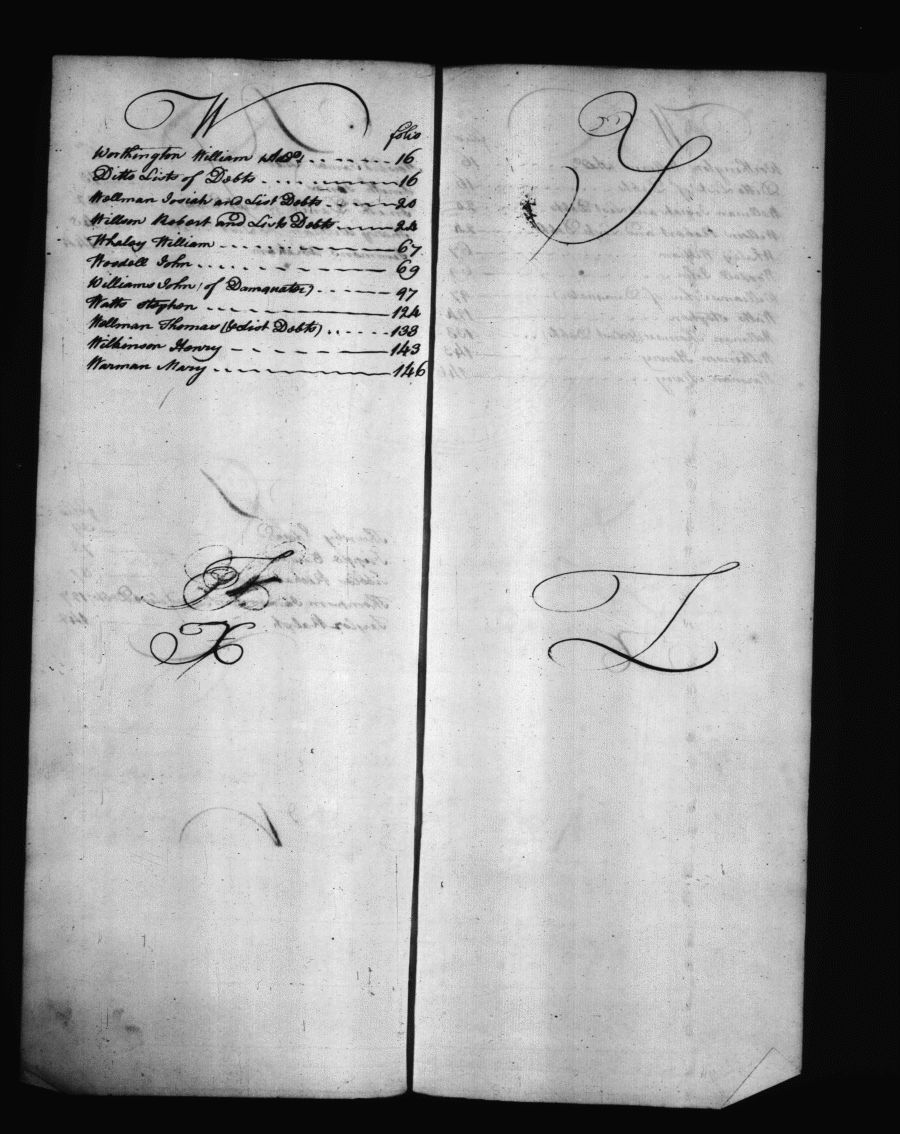 W
folio
Worthington William (Add) 16
Ditto Lists of Debts 16
Wellman Josiah and List Debts 20
Willson Robert and List Debts 24
Whaley William 67
Woodell John 69
Williams John (of 97
Watts Stephen 124
Wellman Thomas (& List Debts) 138
Wilkinson Henry 143
Warman Mary 146
X
Y
Z